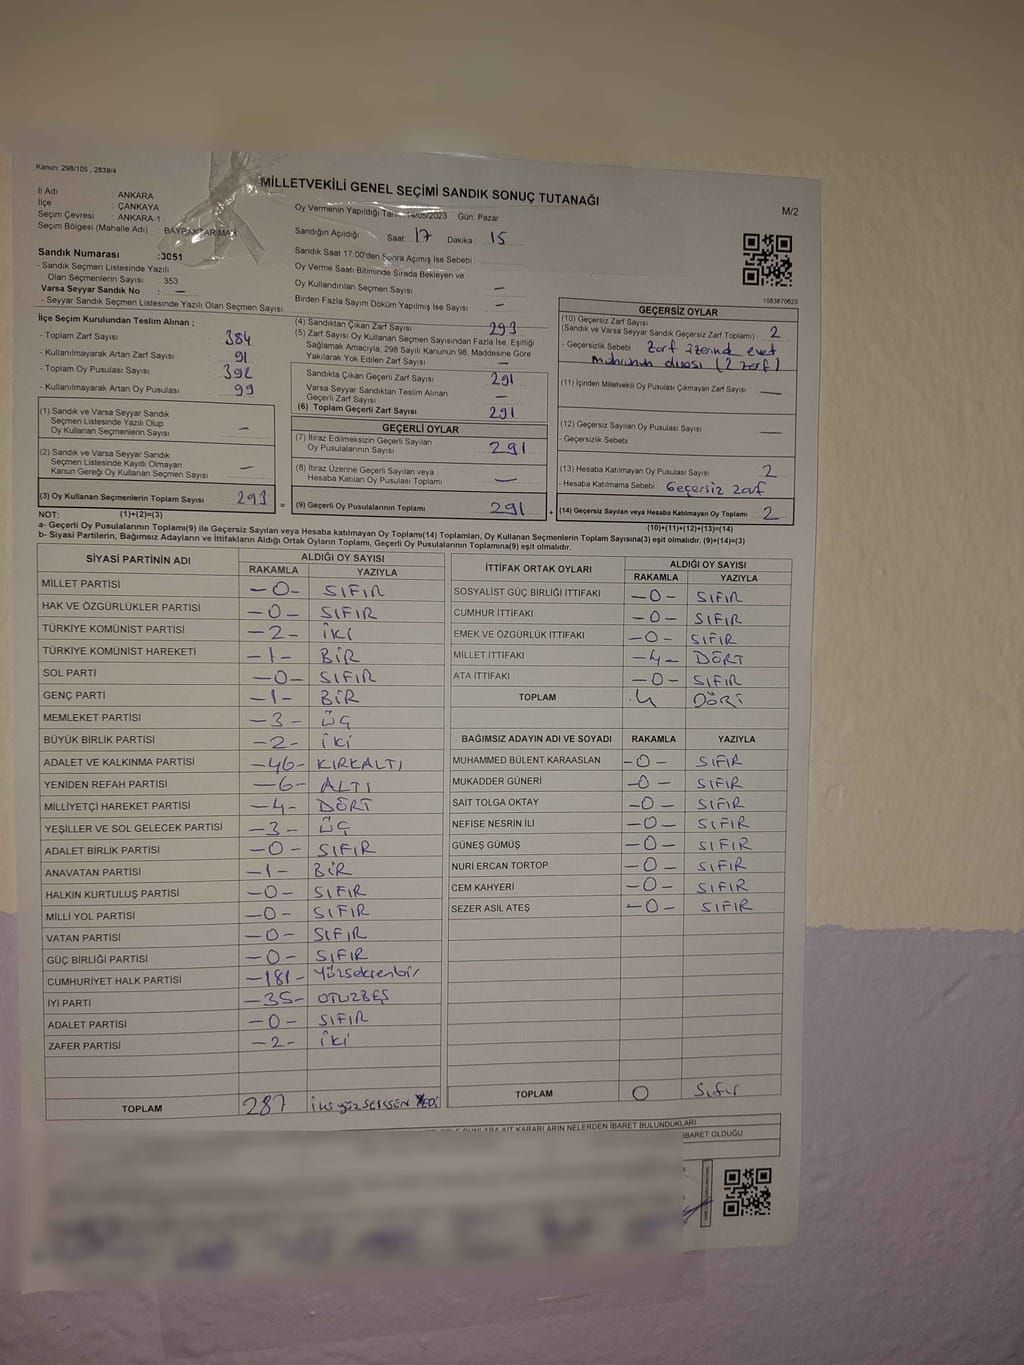 Kanun: 298/105 , 2839/4
MİLLETVEKİLİ GENEL SEÇİMİ SANDIK SONUÇ TUTANAĞI
M/2
İl Adı : ANKARA
İlçe : ÇANKAYA
Seçim Çevresi : ANKARA-1
Seçim Bölgesi (Mahalle Adı) : BAYRAKTAR MAH.
Sandık Numarası :3051
- Sandık Seçmen Listesinde Yazılı
Olan Seçmenlerin Sayısı : 353
Varsa Seyyar Sandık No : —
- Seyyar Sandık Seçmen Listesinde Yazılı Olan Seçmen Sayısı:
Oy Vermenin Yapıldığı Tarih: 14/05/2023 Gün: Pazar
Sandığın Açıldığı Saat: 17 Dakika: 15
Sandık Saat 17:00'den Sonra Açımış İse Sebebi:
Oy Verme Saati Bitiminde Sırada Bekleyen ve
Oy Kullandırılan Seçmen Sayısı —
Birden Fazla Sayım Döküm Yapılmış İse Sayısı —
1083670625
İlçe Seçim Kurulundan Teslim Alınan ;
- Toplam Zarf Sayısı 384
- Kullanılmayarak Artan Zarf Sayısı 91
- Toplam Oy Pusulası Sayısı 392
- Kullanılmayarak Artan Oy Pusulası 99
(1) Sandık ve Varsa Seyyar Sandık
Seçmen Listesinde Yazılı Olup
Oy Kullanan Seçmenlerin Sayısı —
(2) Sandık ve Varsa Seyyar Sandık
Seçmen Listesinde Kayıtlı Olmayan
Kanun Gereği Oy Kullanan Seçmen Sayısı —
(3) Oy Kullanan Seçmenlerin Toplam Sayısı 293 =
(4) Sandıktan Çıkan Zarf Sayısı 293
(5) Zarf Sayısı Oy Kullanan Seçmen Sayısından Fazla İse, Eşitliği
Sağlamak Amacıyla, 298 Sayılı Kanunun 98. Maddesine Göre
Yakılarak Yok Edilen Zarf Sayısı —
Sandıkta Çıkan Geçerli Zarf Sayısı 291
Varsa Seyyar Sandıktan Teslim Alınan
Geçerli Zarf Sayısı —
(6) Toplam Geçerli Zarf Sayısı 291
GEÇERLİ OYLAR
(7) İtiraz Edilmeksizin Geçerli Sayılan
Oy Pusulalarının Sayısı: 291
(8) İtiraz Üzerine Geçerli Sayılan veya
Hesaba Katılan Oy Pusulası Toplamı —
(9) Geçerli Oy Pusulalarının Toplamı 291 +
GEÇERSİZ OYLAR
(10) Geçersiz Zarf Sayısı
(Sandık ve Varsa Seyyar Sandık Geçersiz Zarf Toplamı) 2
- Geçersizlik Sebebi Zarf üzerinde evet
mührünün olması (2 zarf)
(11) İçinden Milletvekili Oy Pusulası Çıkmayan Zarf Sayısı —
(12) Geçersiz Sayılan Oy Pusulası Sayısı —
- Geçersizlik Sebebi
(13) Hesaba Katılmayan Oy Pusulası Sayısı 2
- Hesaba Katılmama Sebebi Geçersiz zarf
(14) Geçersiz Sayılan veya Hesaba Katılmayan Oy Toplamı 2
NOT: (1)+(2)=(3)
(10)+(11)+(12)+(13)=(14)
a- Geçerli Oy Pusulalarının Toplamı(9) ile Geçersiz Sayılan veya Hesaba katılmayan Oy Toplamı(14) Toplamları, Oy Kullanan Seçmenlerin Toplam Sayısına(3) eşit olmalıdır. (9)+(14)=(3)
b- Siyasi Partilerin, Bağımsız Adayların ve İttifakların Aldığı Ortak Oyların Toplamı, Geçerli Oy Pusulalarının Toplamına(9) eşit olmalıdır.
SİYASİ PARTİNİN ADI ALDIĞI OY SAYISI
RAKAMLA YAZIYLA
MİLLET PARTİSİ —0— SIFIR
HAK VE ÖZGÜRLÜKLER PARTİSİ —0— SIFIR
TÜRKİYE KOMÜNİST PARTİSİ —2— İKİ
TÜRKİYE KOMÜNİST HAREKETİ —1— BİR
SOL PARTİ —0— SIFIR
GENÇ PARTİ —1— BİR
MEMLEKET PARTİSİ —3— ÜÇ
BÜYÜK BİRLİK PARTİSİ —2— İKİ
ADALET VE KALKINMA PARTİSİ —46— KIRKALTI
YENİDEN REFAH PARTİSİ —6— ALTI
MİLLİYETÇİ HAREKET PARTİSİ —4— DÖRT
YEŞİLLER VE SOL GELECEK PARTİSİ —3— ÜÇ
ADALET BİRLİK PARTİSİ —0— SIFIR
ANAVATAN PARTİSİ —1— BİR
HALKIN KURTULUŞ PARTİSİ —0— SIFIR
MİLLİ YOL PARTİSİ —0— SIFIR
VATAN PARTİSİ —0— SIFIR
GÜÇ BİRLİĞİ PARTİSİ —0— SIFIR
CUMHURİYET HALK PARTİSİ —181— Yüzseksenbir
İYİ PARTİ —35— OTUZBEŞ
ADALET PARTİSİ —0— SIFIR
ZAFER PARTİSİ —2— İKİ
TOPLAM 287 İKİ YÜZ SEKSEN YEDİ
İTTİFAK ORTAK OYLARI ALDIĞI OY SAYISI
RAKAMLA YAZIYLA
SOSYALİST GÜÇ BİRLİĞİ İTTİFAKI —0— SIFIR
CUMHUR İTTİFAKI —0— SIFIR
EMEK VE ÖZGÜRLÜK İTTİFAKI —0— SIFIR
MİLLET İTTİFAKI —4— DÖRT
ATA İTTİFAKI —0— SIFIR
TOPLAM 4 DÖRT
BAĞIMSIZ ADAYIN ADI VE SOYADI RAKAMLA YAZIYLA
MUHAMMED BÜLENT KARAASLAN —0— SIFIR
MUKADDER GÜNERİ —0— SIFIR
SAİT TOLGA OKTAY —0— SIFIR
NEFİSE NESRİN İLİ —0— SIFIR
GÜNEŞ GÜMÜŞ —0— SIFIR
NURİ ERCAN TORTOP —0— SIFIR
CEM KAHYERİ —0— SIFIR
SEZER ASİL ATEŞ —0— SIFIR
TOPLAM 0 Sıfır
KARARLARIN NELERDEN İBARET BULUNDUKLARI
İBARET OLDUĞU